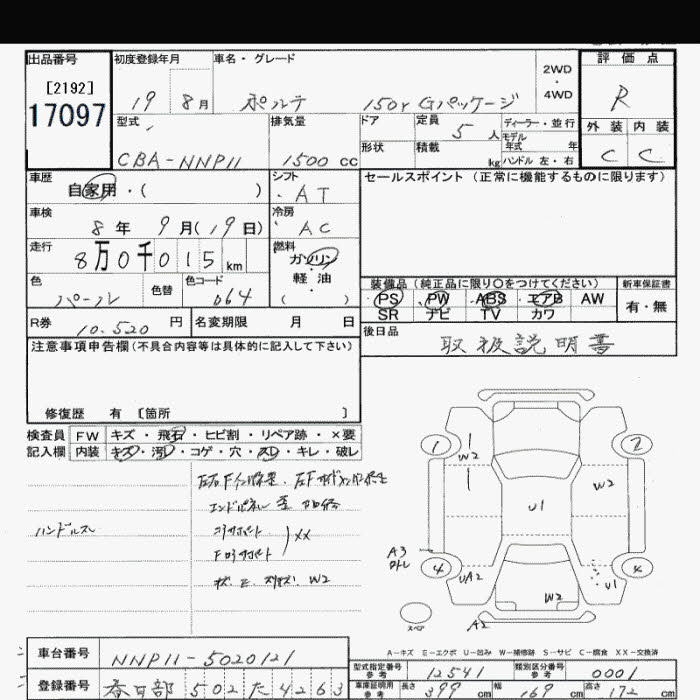 出品番号 初度登録年月 車名・グレード 2WD・4WD 評価点
[2192]
17097 19 8月 ポルテ 150r Gパッケージ R
型式 排気量 ドア 定員 5人 ディーラー・並行 外装 内装
CBA-NNP11 1500cc 形状 積載 kg モデル年式 年 ハンドル 左・右 C C
車歴 自家用・( ) シフト AT セールスポイント(正常に機能するものに限ります)
車検 8年9月(19日) 冷房 AC
走行 8万0千015km 燃料 ガソリン・軽油( )
色 パール 色替 色コード 064
装備品(純正品に限り○をつけてください) 新車保証書
PS PW ABS エアB AW 有・無
SR ナビ TV カワ
R券 10,520円 名変期限 月 日 後日品 取扱説明書
注意事項申告欄(不具合内容等は具体的に記入して下さい)
修復歴 有 [箇所 ]
検査員 FW キズ・飛石・ヒビ割・リペア跡・×要
記入欄 内装 キズ・汚レ・コゲ・穴・スレ・キレ・破レ
エンドパネル 歪
ハンドルスレ
XX
W2
1 W2 2 W2
U1
A3
4 UA2 4 U1
W2
スペア A2
A-キズ E-エクボ U-凹み W-補修跡 S-サビ C-腐食 XX-交換済
車台番号 NNP11-5020121
型式指定番号 参考 12541 類別区分番号 参考 0001
登録番号 春日部 502 た 4263
車庫証明用 参考 長さ 399cm 幅 169cm 高さ 172cm